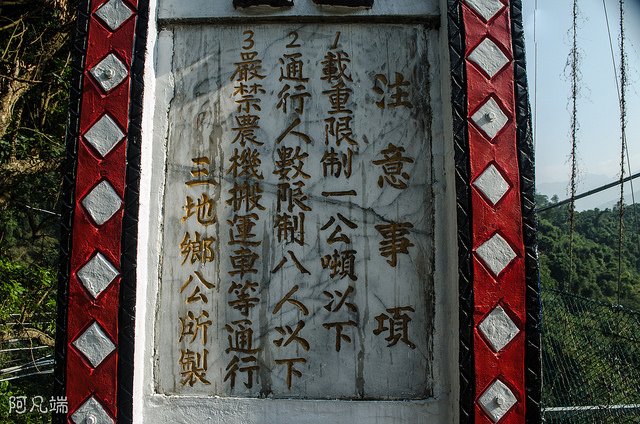 注意事項
1載重限制一公噸以下
2通行人數限制八人以下
3嚴禁農機搬運車等通行
三地鄉公所製
阿凡端